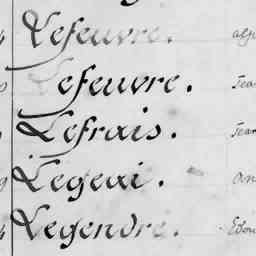 Lefeuvre.
Lefeuvre.
Lefrais.
Legeai.
Legendre.